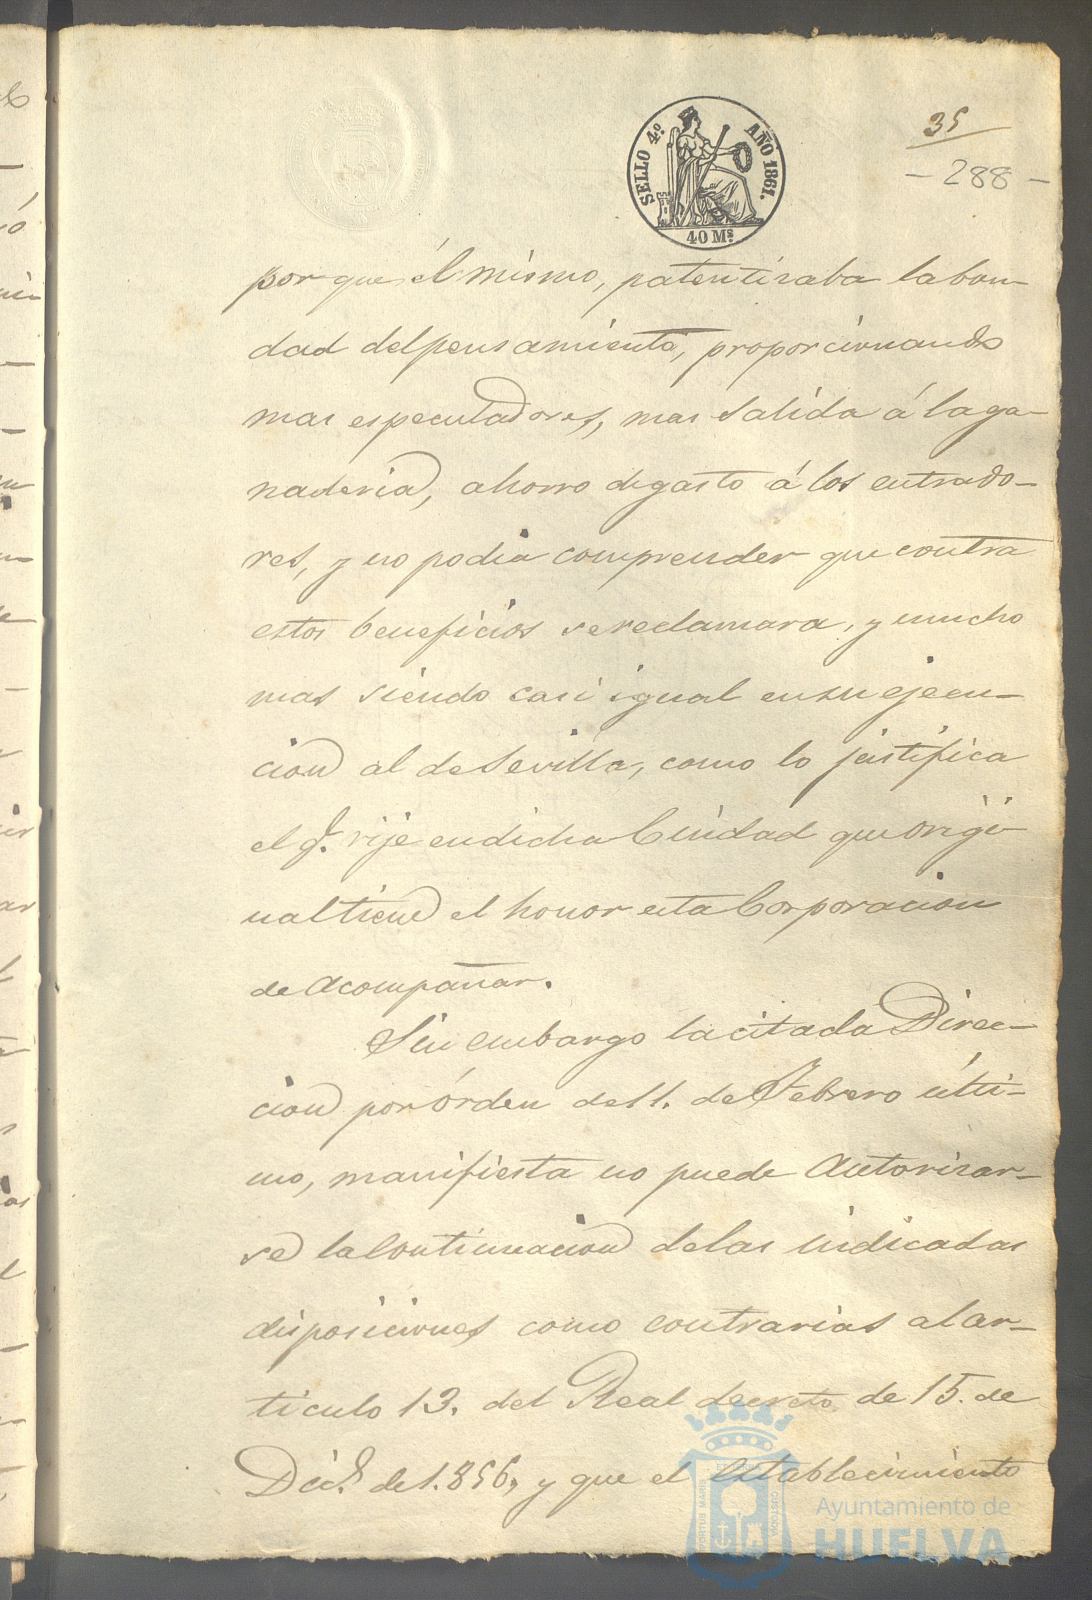 SELLO 4.º AÑO 1861.
40 M.s
35
- 288 -
por que él mismo, patentizaba la bon-
dad del pensamiento, proporcionando
mas especuladores, mas salida á la ga-
naderia, ahorro de gasto á los entrado-
res, y no podia comprender que contra
estos beneficios se reclamara, y mucho
mas siendo casi igual en su ejecu-
cion al de Sevilla, como lo justifica
el q.e rije en dicha Ciudad que origi
nal tiene el honor esta Corporacion
de acompañar.
Sin embargo la citada Direc-
cion por órden del 1. de Febrero últi-
mo, manifiesta no puede autorizar-
se la continuacion de las indicadas
disposiciones como contrarias al ar-
ticulo 13. del Real decreto de 15. de
Dic.e de 1.856, y que el establecimiento
PORTUS MARIS
CUSTODIA
Ayuntamiento de
HUELVA